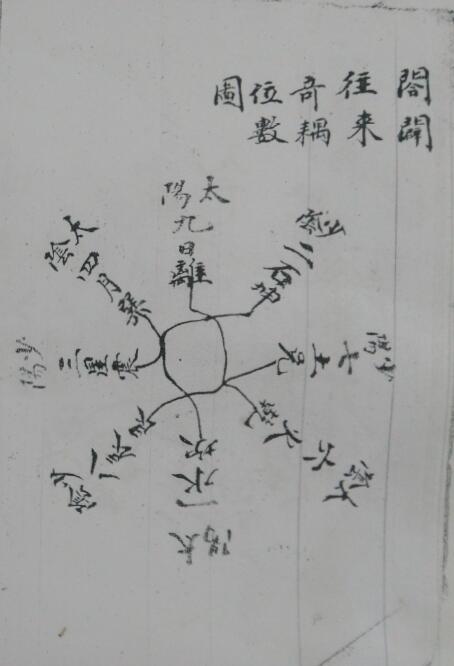 閤
往来
奇耦
位數
圖
太陽
九日離
少陰二石坤
少陽七土兌
太陰六火乾
太陽一水坎
少陰
少陽三星震
太陰四月巽